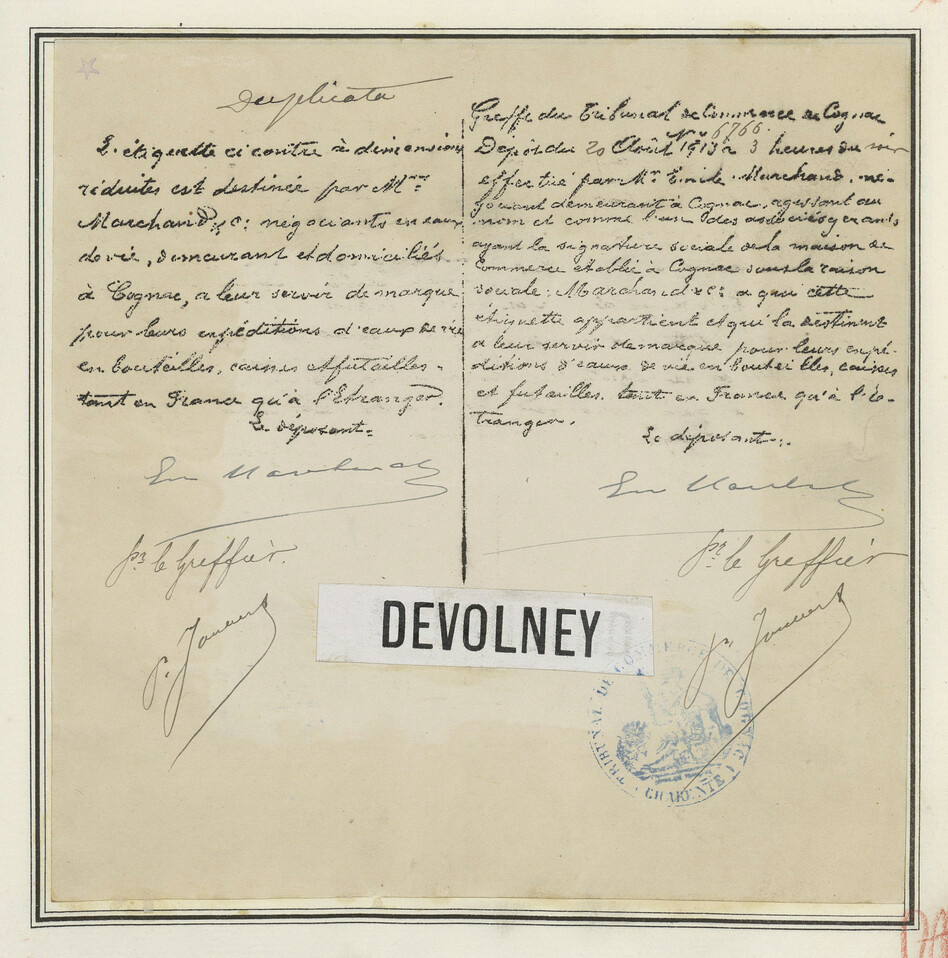 Duplicata
L'étiquette ci contre à dimensions
réduites est destinée par Mrs
Marchand & Cie: négociants en eaux
de vie, demeurant et domiciliés
à Cognac, a leur servir de marque
pour leurs expéditions d'eaux de vie
en bouteilles, caisses et futailles -
tant en France qu'à l'Etranger.
Le déposant=
Em Marchand
Pr le Greffier.
Greffe du Tribunal de Commerce de Cognac
No 6766.
Dépôt du 20 Août 1913 à 3 heures du soir
effectué par Mr Emile Marchand, né-
gociant demeurant à Cognac, agissant au
nom et comme l'un des associés gérants
ayant la signature sociale de la maison de
Commerce établie à Cognac sous la raison
sociale: Marchand & Cie a qui cette
étiquette appartient et qui la destinent
a leur servir de marque pour leurs expé-
ditions d'eaux de vie en bouteilles, caisses
et futailles. tant en France qu'à l'é-
tranger.
Le déposant=:
Em Marchand
Pr le Greffier
DEVOLNEY
TRIBUNAL DE COMMERCE DE COGNAC
CHARENTE